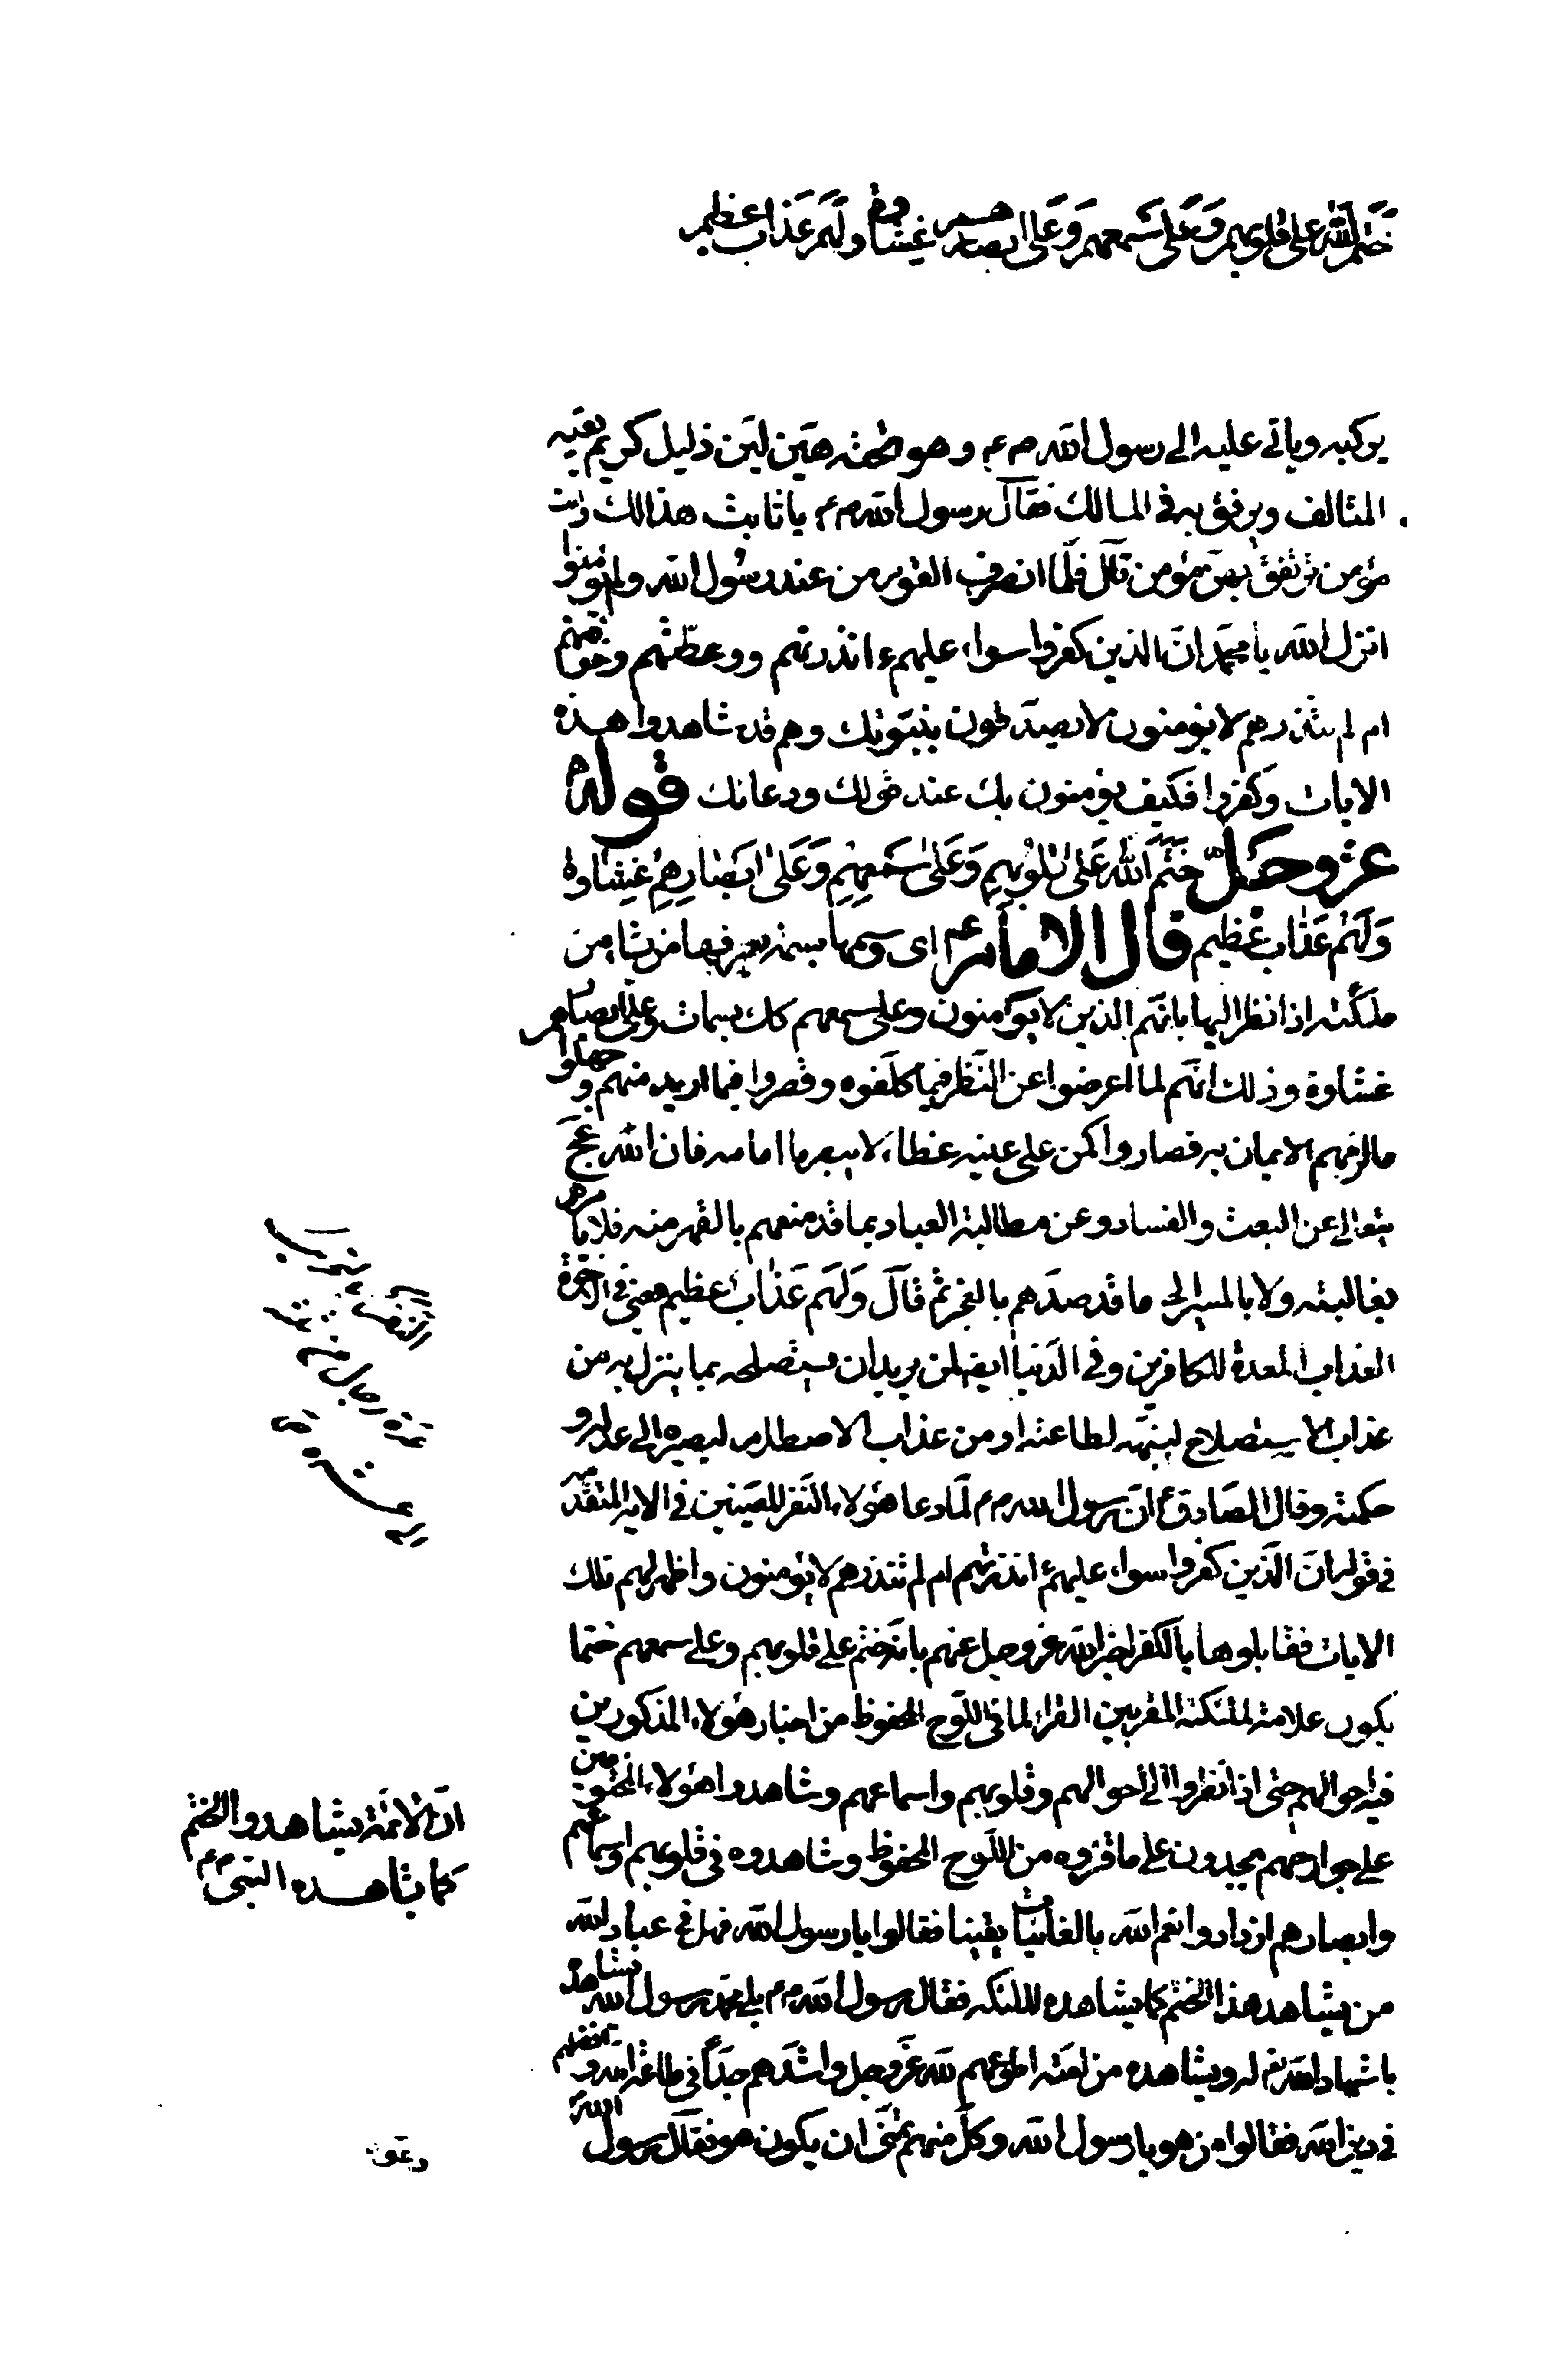 ختم الله على قلوبهم وعلى سمعهم وعلى ابصارهم غشاوة ولهم عذاب عظيم
يركبه وياتى عليه الى رسول الله ص ع وهو تحته هين لين ذليل كريم يقيه
المتالف ويرفق به فى المسالك فقال رسول الله ص م يا ثابت هذا لك وانت
مؤمن ترتفق بمؤمن قال فلما انصرف القوم من عند رسول الله ولم يؤمنوا
انزل الله يا محمد ان الذين كفروا سواء عليهم ءانذرتهم ووعظتهم وخوفتهم
ام لم تنذرهم لا يؤمنون لا يصدقون بنبوتك وهم قد شاهدوا هذه
الايات وكفروا فكيف يؤمنون بك عند قولك ودعائك قوله
عز وجل ختم الله على قلوبهم وعلى سمعهم وعلى ابصارهم غشاوة
ولهم عذاب عظيم قال الامام ع اى وسمها بسمة يعرفها من يشا من
ملئكته اذا نظر اليها بانهم الذين لا يؤمنون وعلى سمعهم كك بسمات وعلى ابصارهم
غشاوة وذلك انهم لما اعرضوا عن النظر فيما كلفوه وقصروا فيما اريد منهم وجهلوا
ما لزمهم الايمان به فصاروا كمن على عينيه غطاء لا يبصر ما امامه فان الله عج
يتعالى عن البعث والفساد وعن مطالبة العباد بما قد منعهم بالقهر منه فلا يامرهم
بمغالبته ولا بالمسير الى ما قد صدهم بالعجز ثم قال ولهم عذاب عظيم يعنى فى الاخرة
العذاب المعدة للكافرين وفى الدنيا ايضا لمن يريد ان يستصلحه بما ينزل به من
عذاب الاستصلاح لينبهه لطاعته او من عذاب الاصطلام ليصيره الى عدله و
حكمته وقال الصادق ع ان رسول الله ص م لما دعا هؤلاء النفر المعينين فى الاية المتقدمة
فى قوله ان الذين كفروا سواء عليهم ءانذرتهم ام لم تنذرهم لا يؤمنون واظهر لهم تلك
الايات فقابلوها بالكفر اخبر الله عز وجل عنهم بانه ختم على قلوبهم وعلى سمعهم ختما
يكون علامة لملئكته المقربين القراء لما فى اللوح المحفوظ من اخبار هؤلاء المذكورين
فيه احوالهم حتى اذا نظروا الى احوالهم وقلوبهم واسماعهم وشاهدوا هؤلاء المختومين
على جوارحهم يجدون على ما قرؤه من اللوح المحفوظ وشاهدوه فى قلوبهم واسماعهم
وابصارهم ازدادوا بعلم الله بالغائبات يقينا فقالوا يا رسول الله فهل فى عباد الله
من يشاهد هذا الختم كما يشاهده الملئكه فقال رسول الله ص م بلى محمد رسول الله يشاهده
باشهاد الله تع له ويشاهده من امته اطوعهم لله عز وجل واشدهم جدا فى طاعة الله وافضلهم
فى دين الله فقالوا من هو يا رسول الله وكل منهم تمنى ان يكون هو فقال رسول الله
ان الائمة يشاهدوا الختم
كما يشاهده النبى ص م
دعوه